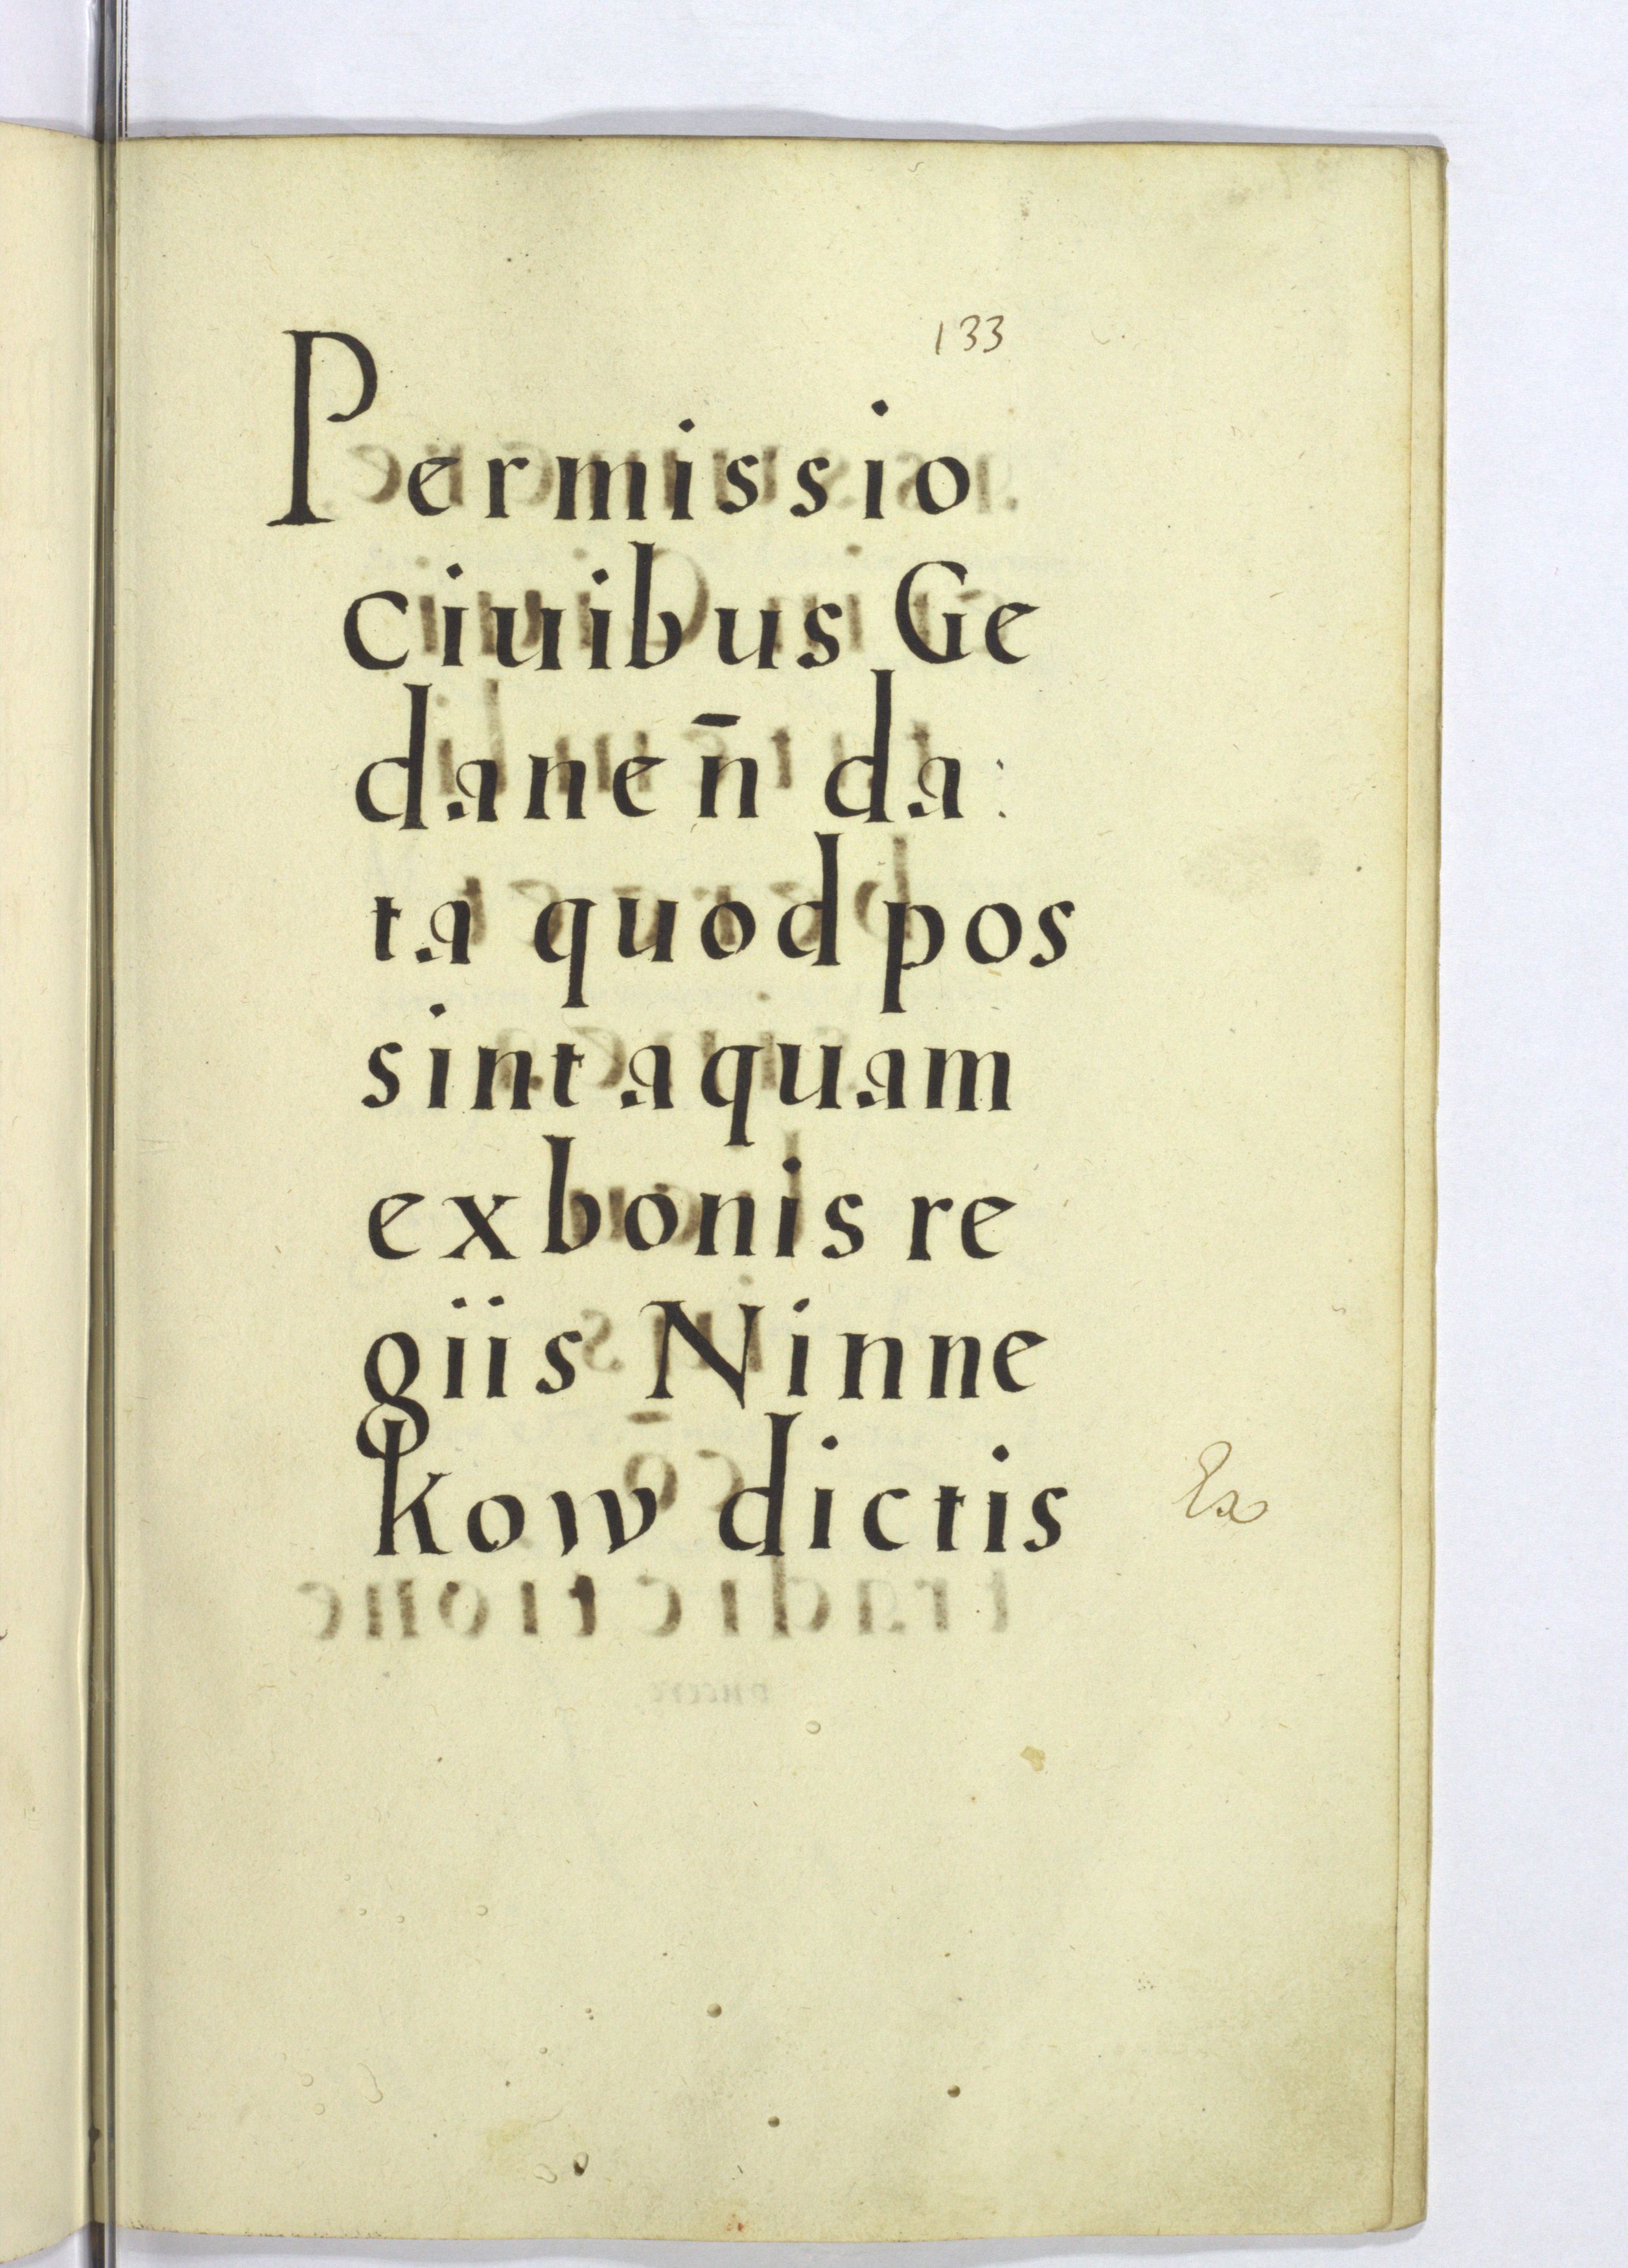 133
Permissio
ciuibus Ge
daneñ da:
ta quod pos
sint aquam
ex bonis re
giis Ninne
kow dictis
Ex